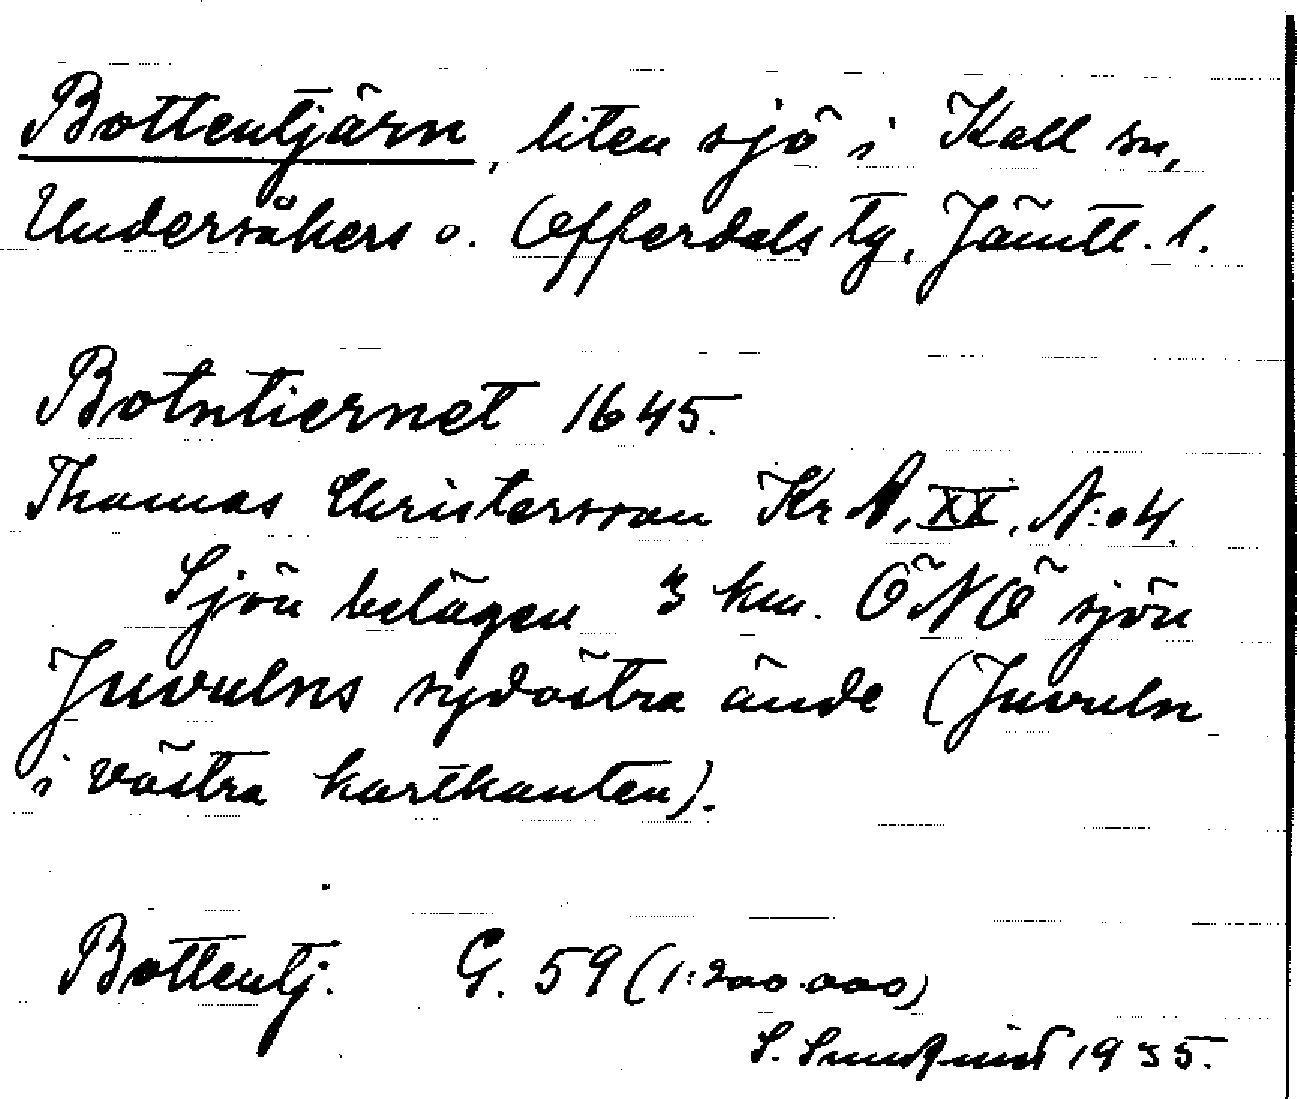 Bottentjärn, liten sjö i Kall sn,
Undersåkers o. Offerdals tg, Jämtl. l.
Botntiernet 1645.
Thomas Christersson Kr A, XX, N:o 4.
Sjön belägen 3 km. ÖNÖ sjön
Juvulns sydöstra ände (Juvuln
i västra kartkanten).
Bottentj. G. 59 (1:200.000)
S. 1935.